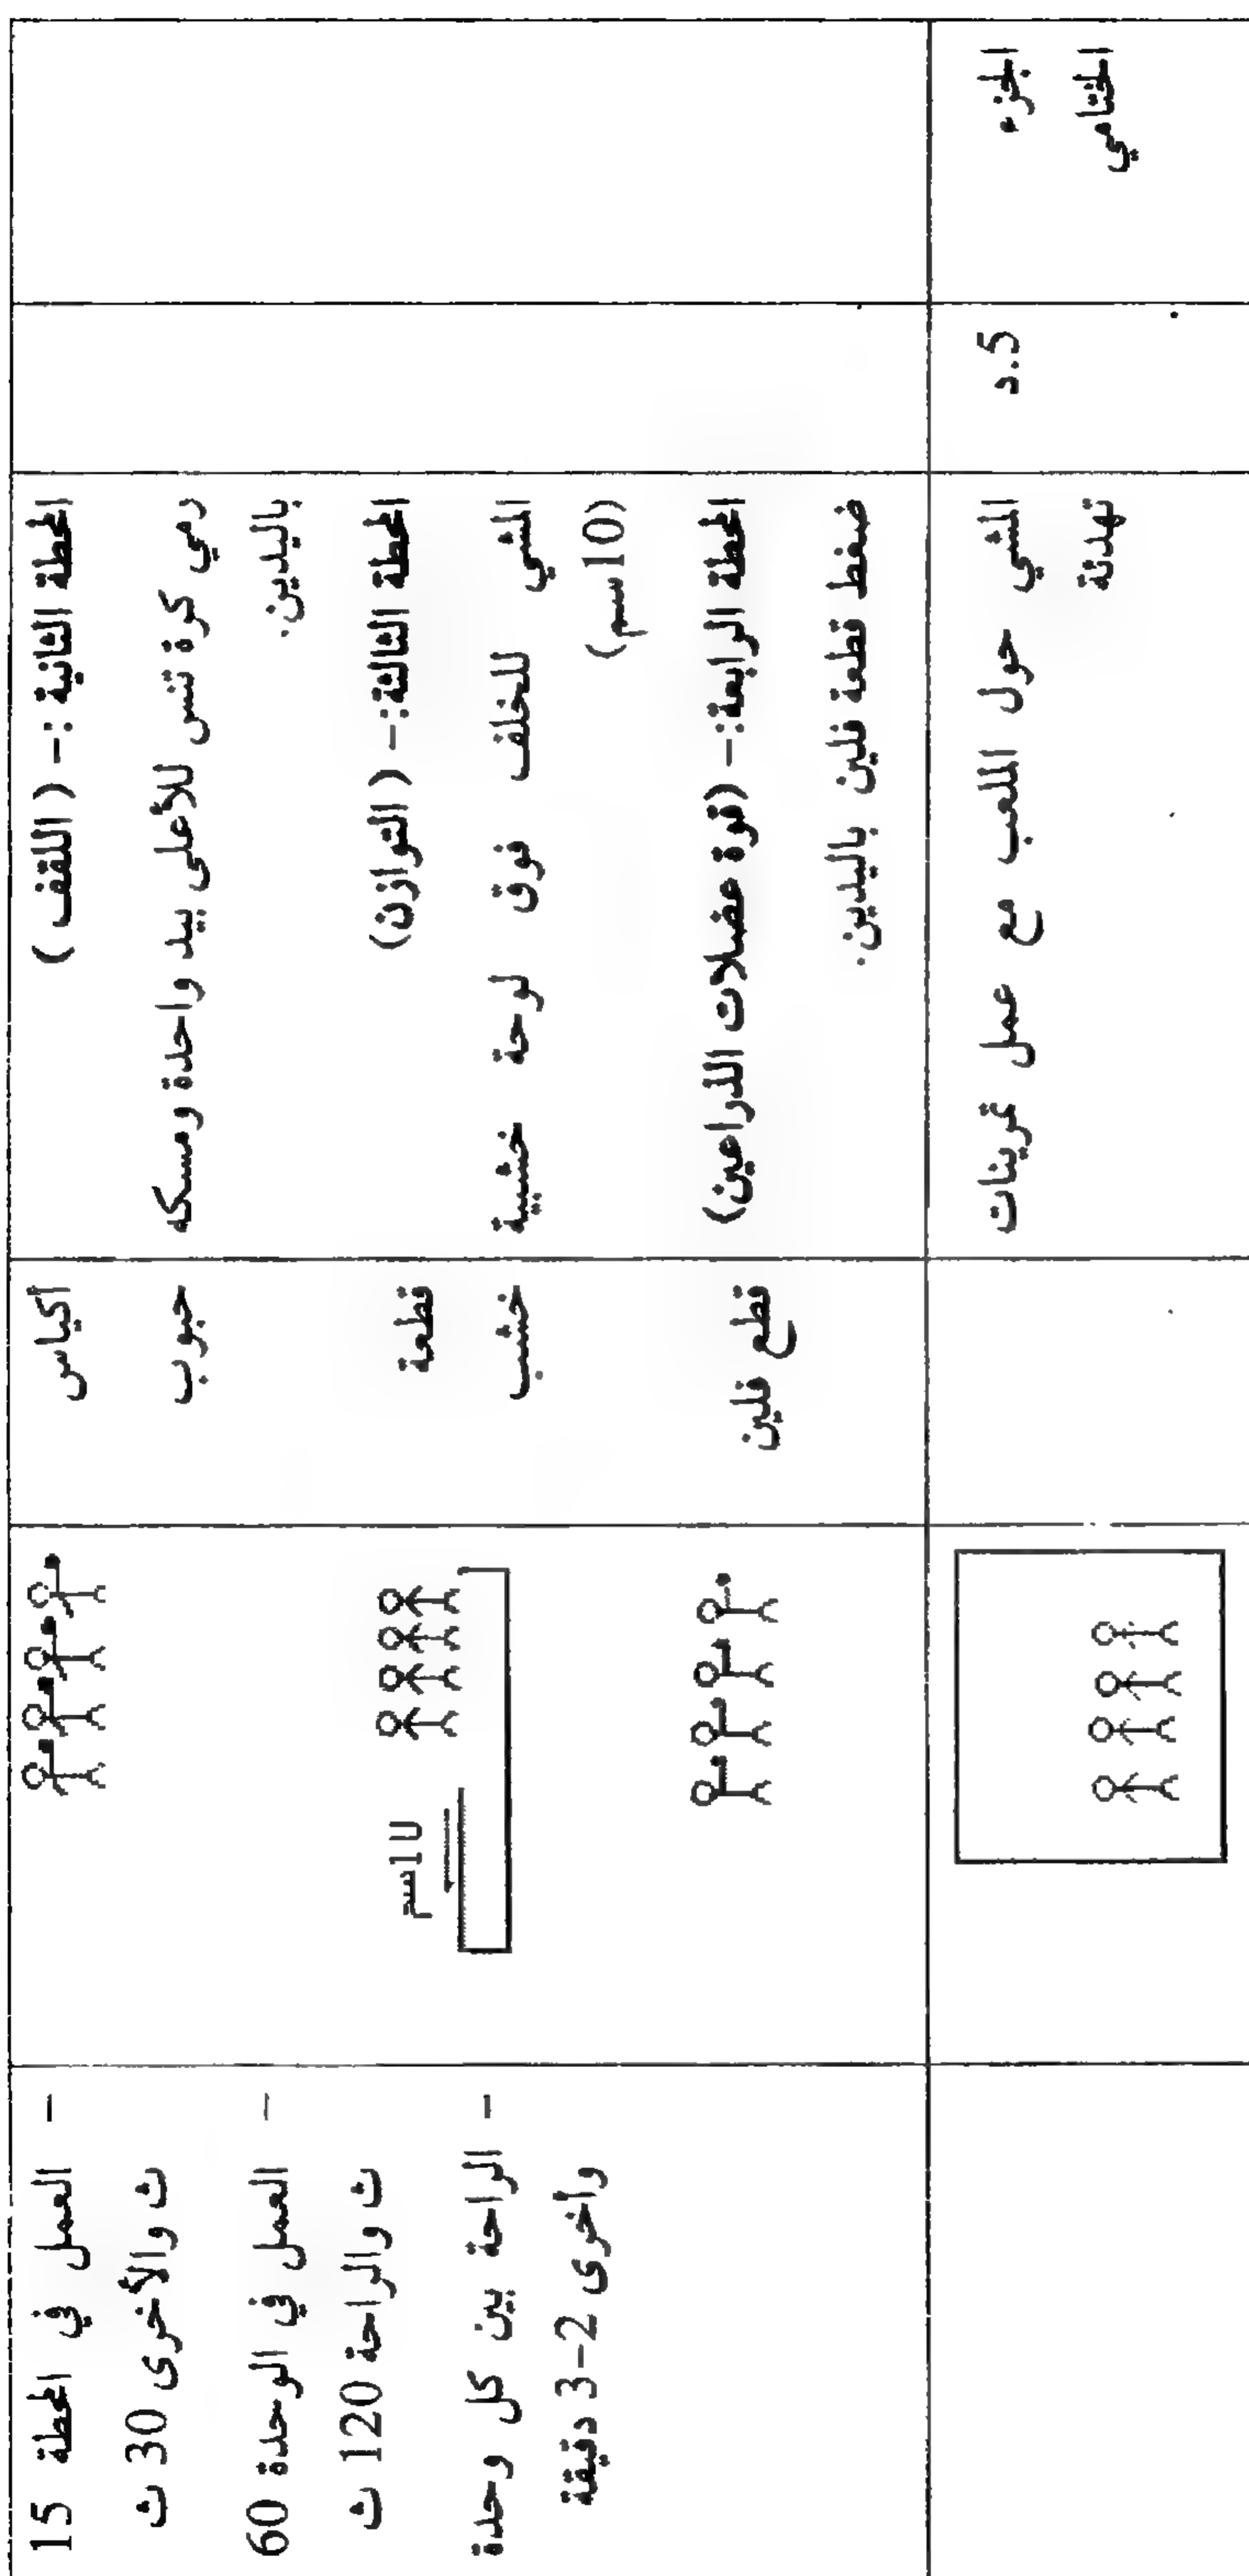 المحطة الثانية :- ( اللقف )
رمي كرة تنس للأعلى بيد واحدة ومسكه
باليدين.
المحطة الثالثة:- ( التوازن)
المشي للخلف فوق لوحة خشبية
(10سم)
المحطة الرابعة:- (قوة عضلات الذراعين)
ضغط قطعة فلين باليدين.
أكياس
حبوب
قطعة
خشب
قطع فلين
10سم
- العمل في المحطة 15
ث والأخرى 30 ث
- العمل في الوحدة 60
ث والراحة 120 ث
- الراحة بين كل وحدة
وأخرى 2-3 دقيقة
الجزء
الختامي
5.د
المشي حول الملعب مع عمل تمرينات
تهدئة